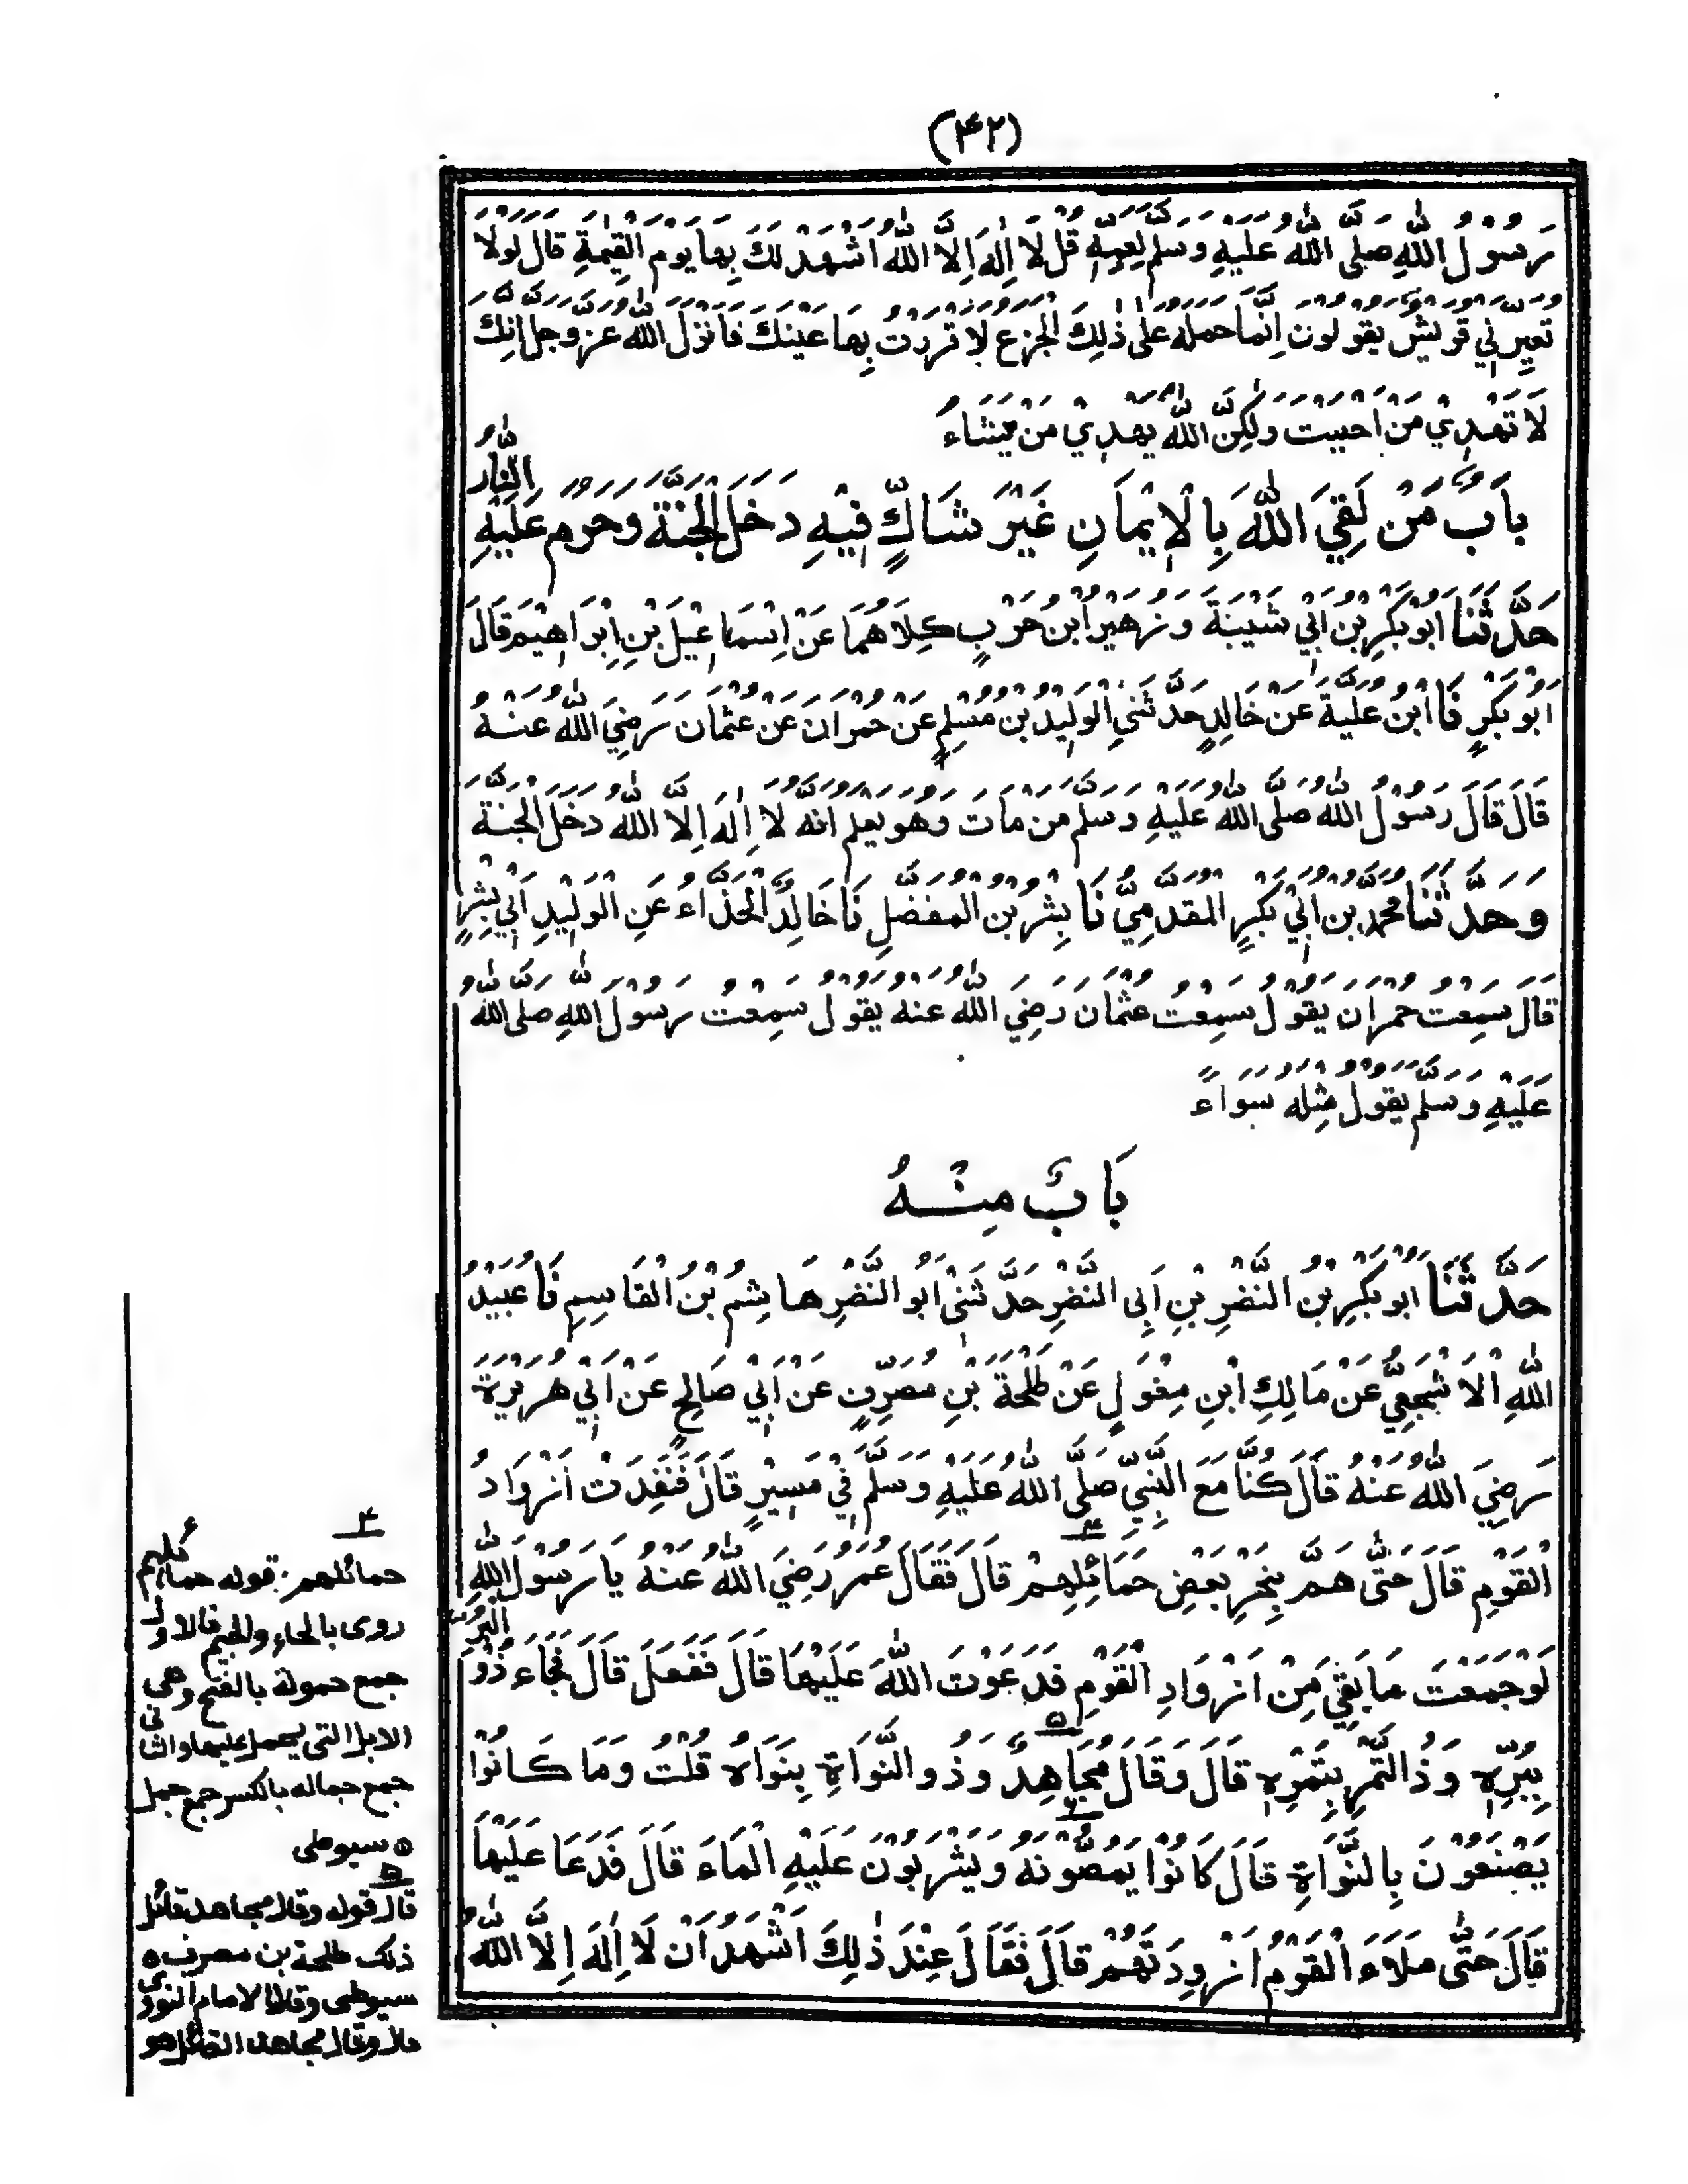 (۴۲)
رَسُوْلُ اللّٰهِ صَلَّى اللّٰهُ عَلَيْهِ وَسَلَّمَ لِعَمِّهٖ قُلْ لَا اِلٰهَ اِلَّا اللّٰهُ اَشْهَدْ لَكَ بِهَا يَوْمَ الْقِيٰمَةِ قَالَ لَوْلَا
تُعَيِّرُنِيْ قُرَيْشٌ يَقُوْلُوْنَ اِنَّمَا حَمَلَهٗ عَلٰى ذٰلِكَ الْجَزَعُ لَاَقْرَرْتُ بِهَا عَيْنَكَ فَاَنْزَلَ اللّٰهُ عَزَّ وَجَلَّ اِنَّكَ
لَا تَهْدِيْ مَنْ اَحْبَبْتَ وَلٰكِنَّ اللّٰهَ يَهْدِيْ مَنْ يَّشَاءُ
بَابٌ مَنْ لَقِيَ اللّٰهَ بِالْاِيْمَانِ غَيْرَ شَاكٍّ فِيْهِ دَخَلَ الْجَنَّةَ وَحُرِّمَ عَلَيْهِ النَّارُ
حَدَّثَنَا اَبُوْ بَكْرِ بْنُ اَبِيْ شَيْبَةَ وَزُهَيْرُ ابْنُ حَرْبٍ كِلَاهُمَا عَنْ اِسْمَاعِيْلَ بْنِ اِبْرَاهِيْمَ قَالَ
اَبُوْ بَكْرٍ نَا ابْنُ عُلَيَّةَ عَنْ خَالِدٍ حَدَّثَنِي الْوَلِيْدُ بْنُ مُسْلِمٍ عَنْ حُمْرَانَ عَنْ عُثْمَانَ رَضِيَ اللّٰهُ عَنْهُ
قَالَ قَالَ رَسُوْلُ اللّٰهِ صَلَّى اللّٰهُ عَلَيْهِ وَسَلَّمَ مَنْ مَاتَ وَهُوَ يَعْلَمُ اَنَّهٗ لَا اِلٰهَ اِلَّا اللّٰهُ دَخَلَ الْجَنَّةَ
وَحَدَّثَنَا مُحَمَّدُ بْنُ اَبِيْ بَكْرٍ الْمُقَدَّمِيُّ نَا بِشْرُ بْنُ الْمُفَضَّلِ نَا خَالِدُ الْحَذَّاءُ عَنِ الْوَلِيْدِ اَبِيْ بِشْرٍ
قَالَ سَمِعْتُ حُمْرَانَ يَقُوْلُ سَمِعْتُ عُثْمَانَ رَضِيَ اللّٰهُ عَنْهُ يَقُوْلُ سَمِعْتُ رَسُوْلَ اللّٰهِ صَلَّى اللّٰهُ
عَلَيْهِ وَسَلَّمَ يَقُوْلُ مِثْلَهٗ سَوَاءً
بَابٌ مِنْهُ
حَدَّثَنَا اَبُوْ بَكْرِ بْنُ النَّضْرِ بْنِ اَبِي النَّضْرِ حَدَّثَنِيْ اَبُو النَّضْرِ هَاشِمُ بْنُ الْقَاسِمِ نَا عُبَيْدُ
اللّٰهِ الْاَشْجَعِيُّ عَنْ مَالِكِ ابْنِ مِغْوَلٍ عَنْ طَلْحَةَ بْنِ مُصَرِّفٍ عَنْ اَبِيْ صَالِحٍ عَنْ اَبِيْ هُرَيْرَةَ
رَضِيَ اللّٰهُ عَنْهُ قَالَ كُنَّا مَعَ النَّبِيِّ صَلَّى اللّٰهُ عَلَيْهِ وَسَلَّمَ فِيْ مَسِيْرٍ قَالَ فَنَفِدَتْ اَزْوَادُ
الْقَوْمِ قَالَ حَتّٰى هَمَّ بِنَحْرِ بَعْضِ حَمَائِلِهِمْ ۴ قَالَ فَقَالَ عُمَرُ رَضِيَ اللّٰهُ عَنْهُ يَا رَسُوْلَ اللّٰهِ
لَوْ جَمَعْتَ مَا بَقِيَ مِنْ اَزْوَادِ الْقَوْمِ فَدَعَوْتَ اللّٰهَ عَلَيْهَا قَالَ فَفَعَلَ قَالَ فَجَاءَ ذُو الْبُرِّ
بِبُرِّهٖ وَذُو التَّمْرِ بِتَمْرِهٖ قَالَ وَقَالَ مُجَاهِدٌ ۵ وَذُو النَّوَاةِ بِنَوَاهُ قُلْتُ وَمَا كَانُوْا
يَصْنَعُوْنَ بِالنَّوَاةِ قَالَ كَانُوْا يَمُصُّوْنَهٗ وَيَشْرَبُوْنَ عَلَيْهِ الْمَاءَ قَالَ فَدَعَا عَلَيْهَا
قَالَ حَتّٰى مَلَاءَ الْقَوْمُ اَزْوِدَتَهُمْ قَالَ فَقَالَ عِنْدَ ذٰلِكَ اَشْهَدُ اَنْ لَا اِلٰهَ اِلَّا اللّٰهُ
۴
حمائلهم: قوله حمائلهم
روى بالحاء والجيم فالاول
جمع حمولة بالفتح وهى
الابل التى يحمل عليها والثانى
جمع جماله بالكسر جمع جمل
٥ سيوطى
۵
قال قوله وقال مجاهد قائل
ذلك طلحة بن مصرف ٥
سيوطى وقال الامام النووى
وقال مجاهد القائل هو